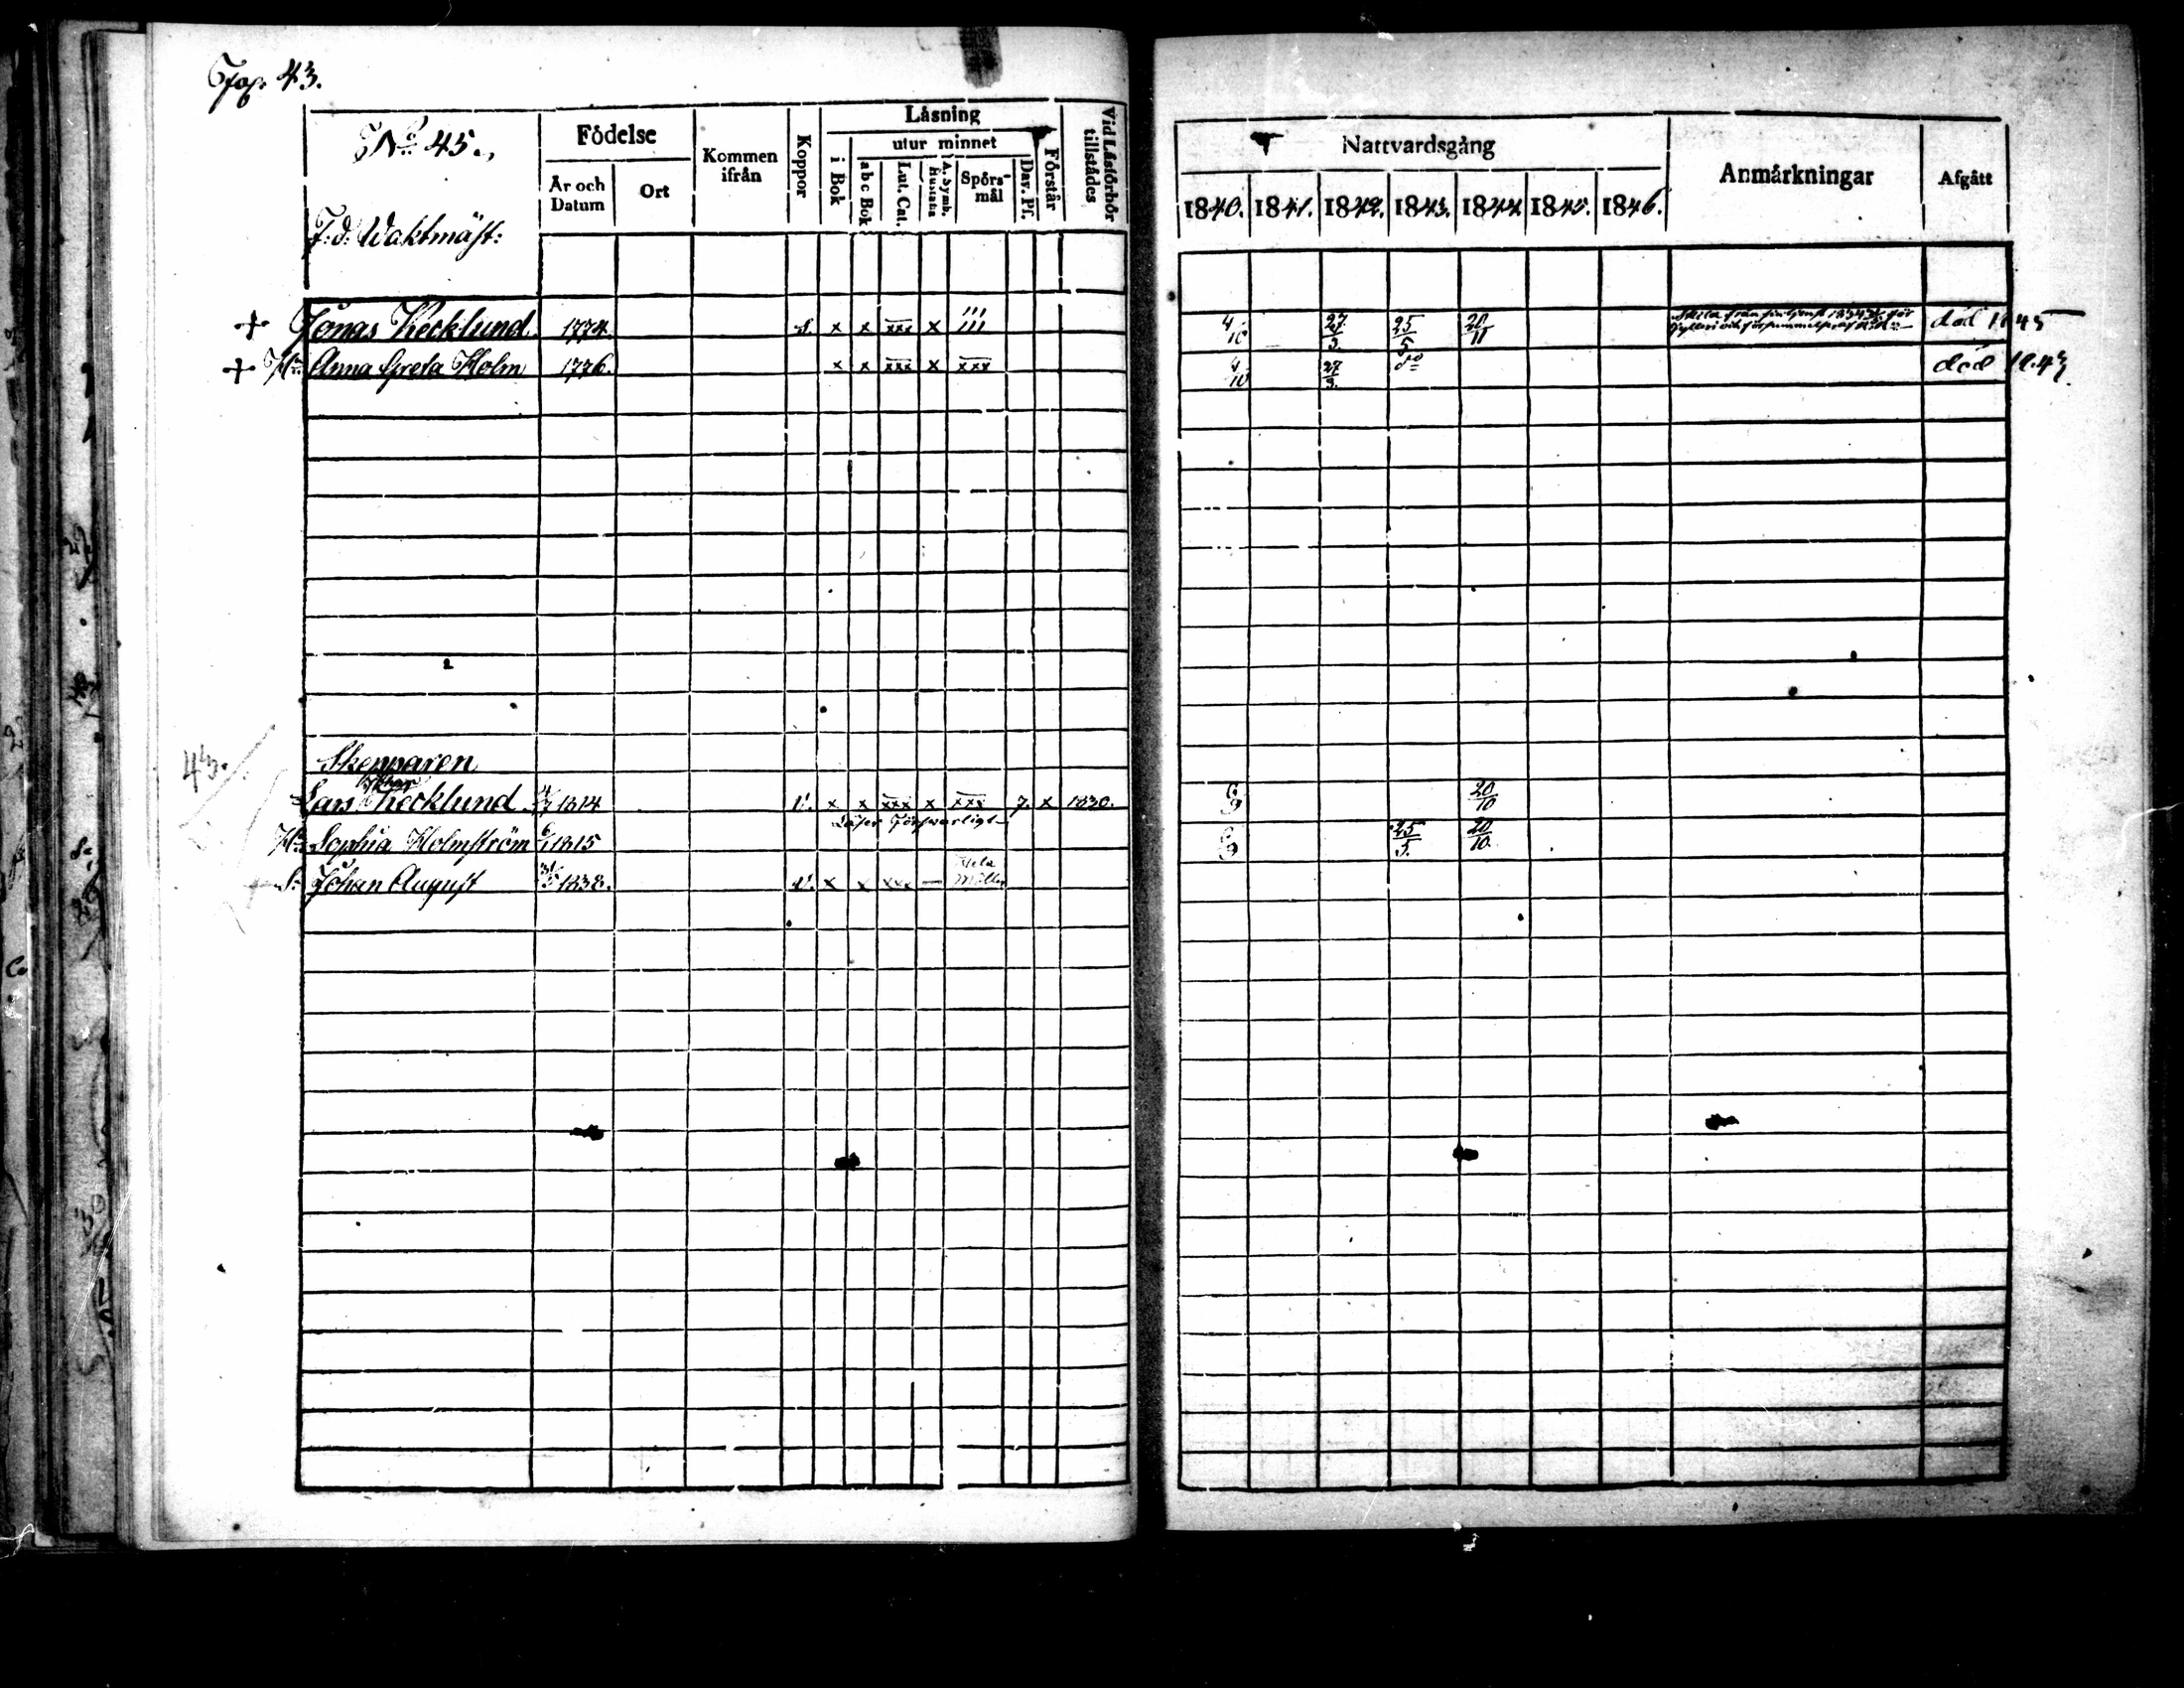 43.
No 45.
F.d. Waktmäst:
Födelse
År och Datum
Ort
Kommen ifrån
Koppor
Läsning
i Bok
utur minnet
abc Bok
Lut. Cat.
A. Symb.
Hustafla
Spörsmål
Dav. Ps.
Förstår
Vid Läsförhör tillstädes
Nattvardsgång
1840. 1841. 1842. 1843. 1844. 1845. 1846.
Anmärkningar
Afgått
+ Jonas Kecklund. 1774. x x xxx x 4/10 27/3 25/5 20/11 död 1845
+ Hu. Anna Greta Holm 1776. x x xxx x xxx 4/10 27/3. do död 1843.
43.
Skepparen
Johan
Lars Kecklund 1814 v. x x xxx x xxx 7. x 1830. 6/9 20/10
Läser försvarligt
Hu. Sophia Holmström 1815 6/9 25/5. 20/10.
S. Johan August 1838. v. x x xxx —